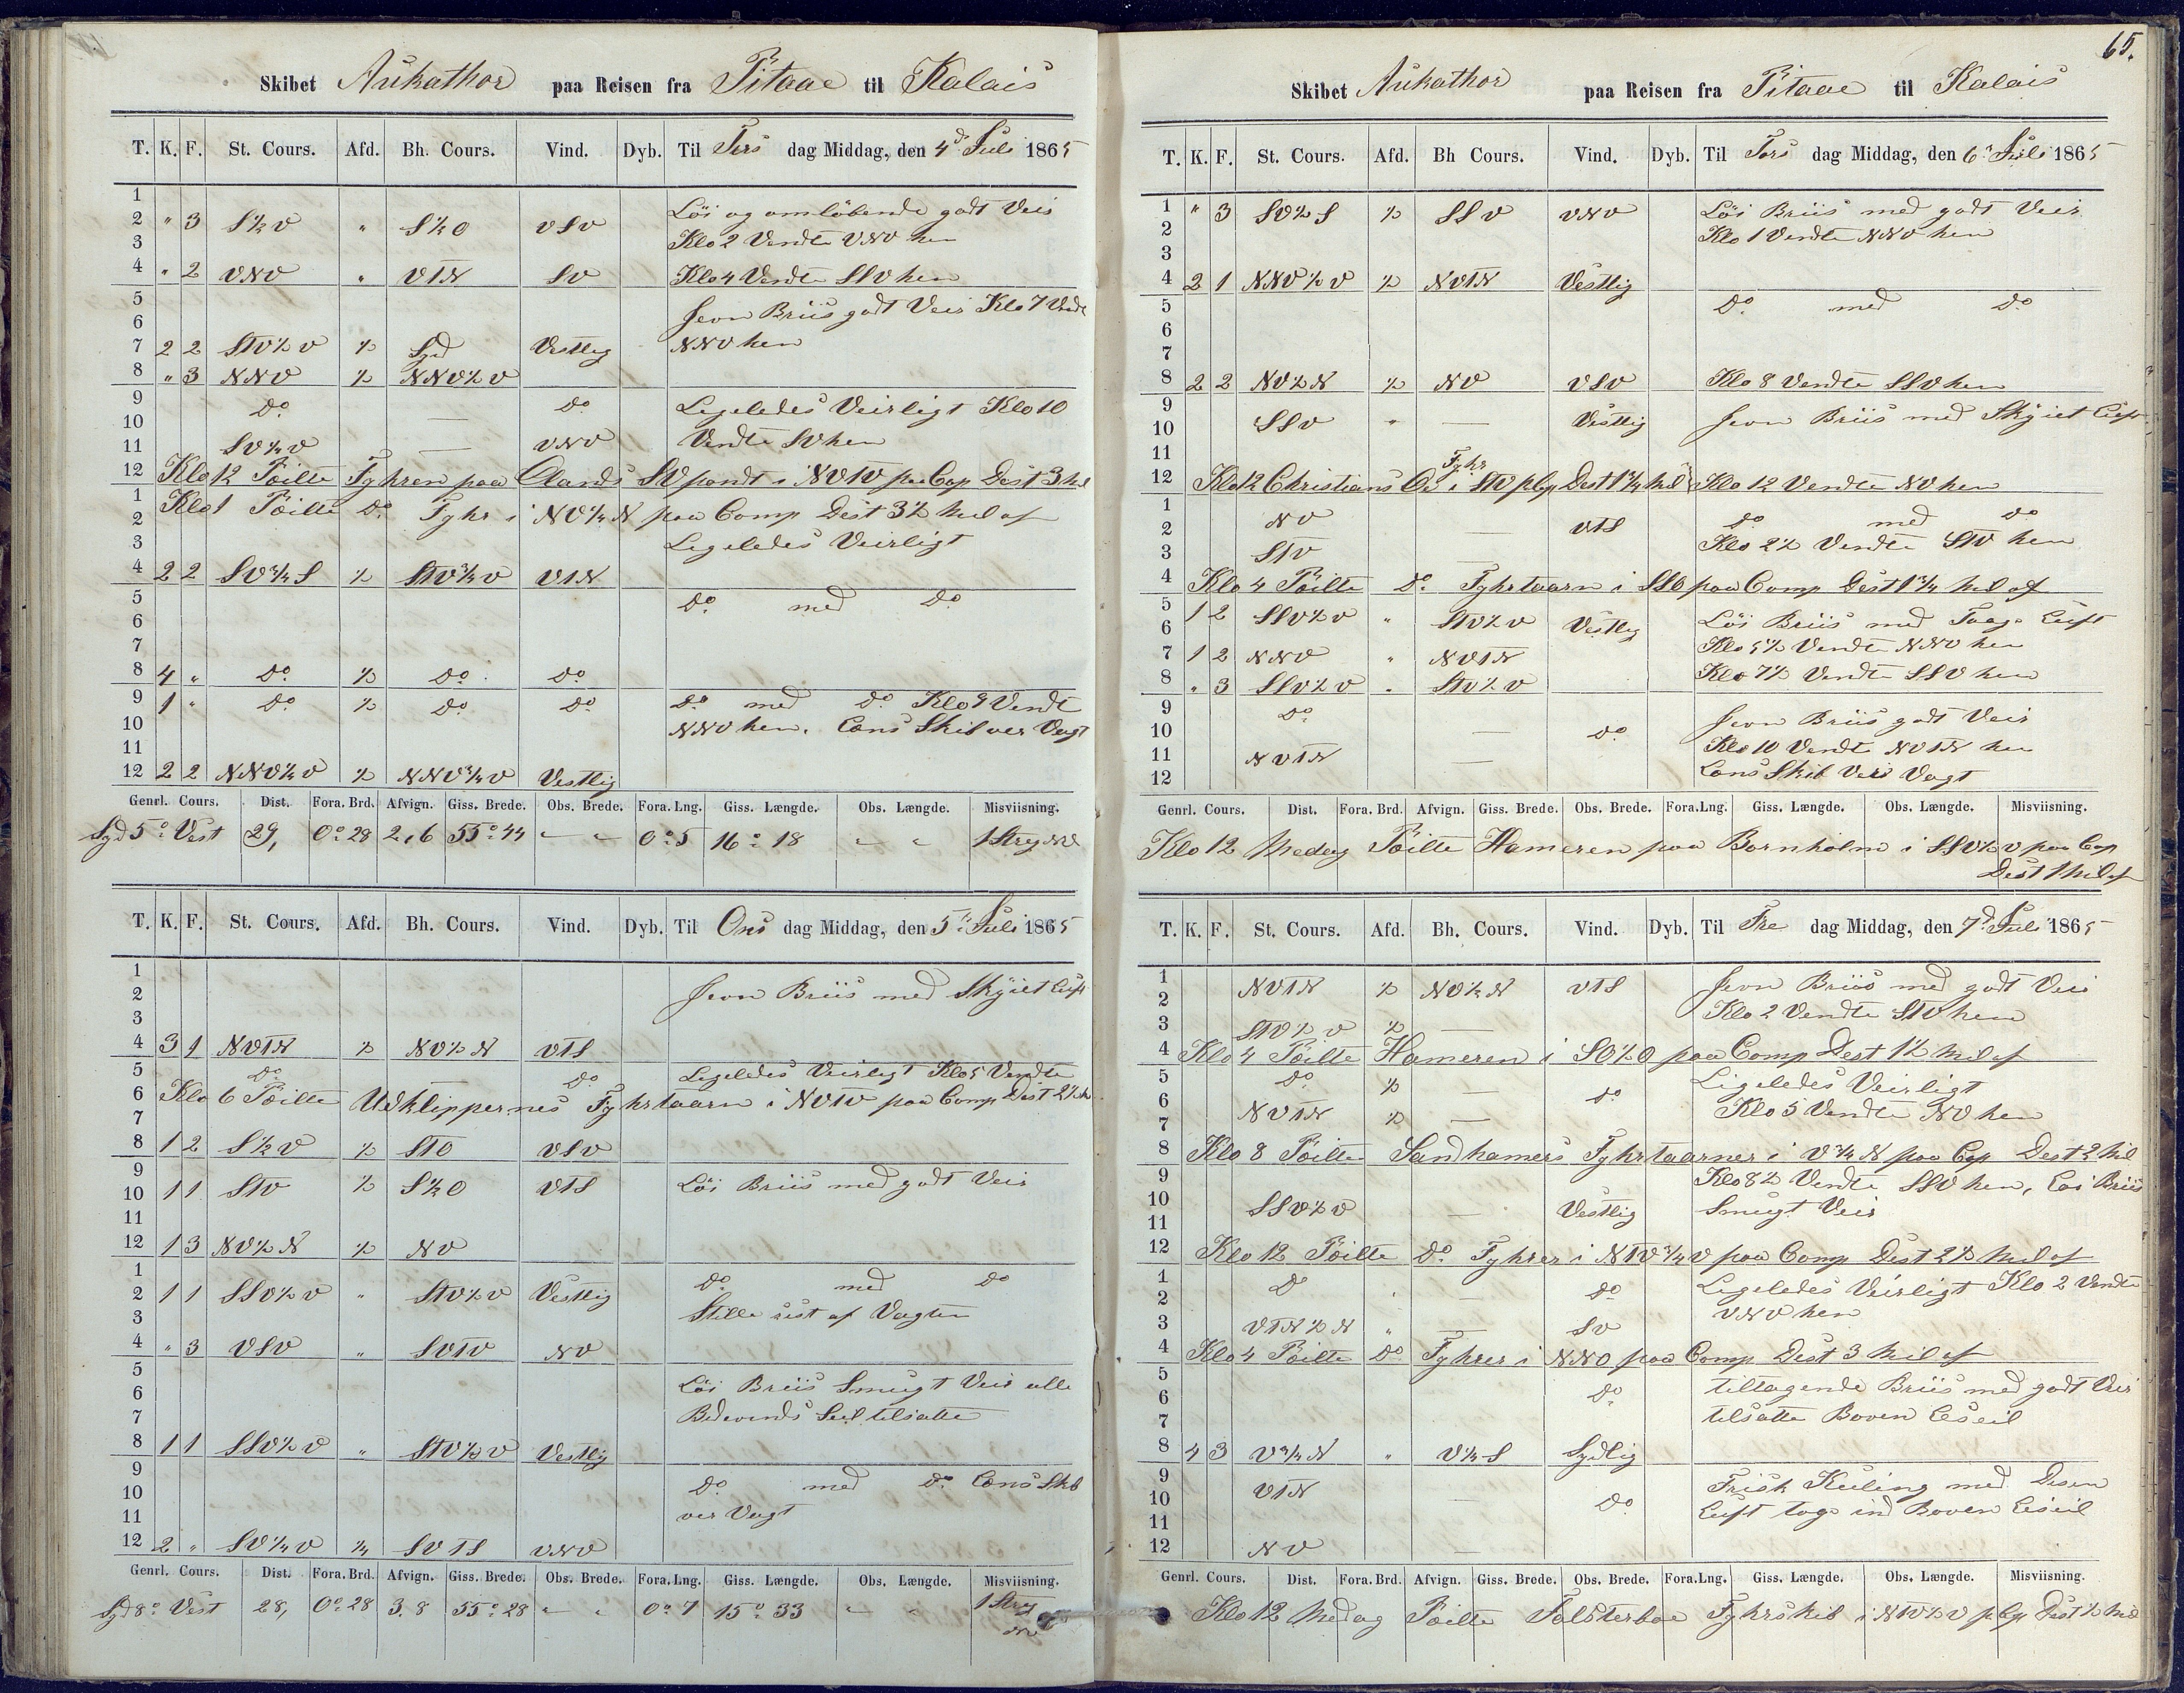 Skibet Aukathor paa Reisen fra Pitaae til Kalais
T. K. F. St. Cours. Afd. Bh. Cours. Vind. Dyb. Til Tirs dag Middag, den 4d. Juli 1865
1
2 " 3 S½V " S¼O VSV Löi og omlöbende godt Veir
3 Klo 2 Vendte VNV hen
4 " 2 VNV " VTN SV Klo 4 Vendte SSV hen
5 Jevn Briis godt Veir Klo 7 Vendt
6
7 2 2 STV½V ½ Syd Vestlig NNV hen
8 " 3 NNV ½ NNV½V
9 Do — Do Ligeledes Veirligt Klo 10
10
11 SV¼V — VNV Vendte SV hen
12 Klo 12 Pöilte Fyhren paa Olands SV pondt i NVTV paa Cop Dest 3 Mil
1 Klo 1 Pöilte Do Fyhr i NV¼N paa Comp Dest 3½ Mil af
2
3 Ligeledes Veirligt
4 2 2 SV¾S ½ STV¾V VTN
5 Do med Do
6
7
8 4 " Do ½ Do Do
9 1 " Do ½ Do Do Do med Do Klo 9 Vendt
10 NNV hen. Lens Skib ver Vagt
11
12 2 2 NNV¼V ½ NNV¾V Vestlig
Genrl. Cours. Dist. Fora. Brd. Afvign. Giss. Brede. Obs. Brede. Fora. Lng. Giss. Længde. Obs. Længde. Misviisning.
Syd 5° Vest 29, 0° 28 2,6 55° 44 " " 0° 5 16° 18 " " 1 Streg NV
T. K. F. St. Cours. Afd. Bh. Cours. Vind. Dyb. Til Ons dag Middag, den 5te Juli 1865
1 Jevn Briis med Skÿiet Luft
2
3
4 3 1 NVTN ½ NV½N VTS
5 Do Do Ligeledes Veirligt Klo 5 Vendte
6 Klo 6 Pöilte Udklippernes Fyhrtaarn i NVTV paa Comp Dest 2½
7
8 1 2 S½V ½ STO VSV
9
10 1 1 STV ½ S¼O VTS Löi Briis med godt Veir
11
12 1 3 NV½N ½ NV
1 Do med Do
2 1 1 SSV½V " STV½V Vestlig
3 Stille sist af Vagten
4 " 3 VSV " SVTV NV
5 Löi Briis Smugt Veir alle
6
7 Bidevinds Seil tilsatte
8 1 1 SSV½V " STV½V Vestlig
9 Do med Do Lens Skib
10
11 ver Vagt
12 2 " SV¼V ¼ SVTS VNV
Genrl. Cours. Dist. Fora. Brd. Afvign. Giss. Brede. Obs. Brede. Fora. Lng. Giss. Længde. Obs. Længde. Misviisning.
Syd 8° Vest 28, 0° 28 3.8 55° 28 " " 0° 7 15° 33 " " 1 Streg
NV
65.
Skibet Aukathor paa Reisen fra Pitaae til Kalais
T. K. F. St. Cours. Afd. Bh Cours. Vind. Dyb. Til Tors dag Middag, den 6te Juli 1865
1 " 3 SV½S ½ SSV VNV Löi Briis med godt Veir
2 Klo 1 Vendte NNV hen
3
4 2 1 NNV½V ½ NVTN Vestlig
5 Do med Do
6
7
8 2 2 NV½N ½ NV VSV Klo 8 Vendte SSV hen
9
10 SSV " — Vestlig Jevn Briis med Skÿiet Luft
11
12 Klo 12 Christians Oe Fyhr i STV p Cp Dest 1¼ Mil Klo 12 Vendte NV hen
1 NV — VTS Do med Do
2 Klo 2½ Vendte STV hen
3 STV
4 Klo 4 Pöilte Do Fyhrtaarn i SSO paa Comp Dest 1¾ Mil af
5 1 2 SSV½V " STV½V Vestlig Löi Briis med Taage Luft
6 Klo 5½ Vendte NNV hen
7 1 2 NNV " NVTN
8 " 3 SSV½V " STV½V Klo 7½ Vendte SSV hen
9 Do — Do Jevn Briis godt Veir
10 Klo 10 Vendte NVTN hen
11 NVTN —
12 Lens Skib Ver Vagt
Genrl. Cours. Dist. Fora. Brd. Afvign. Giss. Brede. Obs. Brede. Fora.Lng. Giss. Længde. Obs. Længde. Misviisning.
Klo 12 Medag Pöilte Hameren paa Bornholm i SSV½V paa Cop
Dest 1 Mil af
T. K. F. St. Cours. Afd. Bh. Cours. Vind. Dyb. Til Fre dag Middag, den 7d. Juli 1865
1 NVTN ½ NV½N VTS Jevn Briis med godt Veir
2 Klo 2 Vendte STV hen
3 STV½V ½ —
4 Klo 4 Pöilte Hameren i SO½O paa Comp Dest 1½ Mil af
5 Do ½ — Do Ligeledes Veirligt
6 Klo 5 Vendte NV hen
7 NVTN ½ —
8 Klo 8 Pöilte Sandhamers Fyhrtaarner i V¾N paa Cop Dest 2 Mil
9 Klo 8½ Vendte SSV hen, Löi Briis
10 SSV½V — Vestlig Smugt Veir
11
12 Klo 12 Pöilte Do Fyhrer i NTV¾V paa Comp Dest 2½ Mil af
1 D " — Do Ligeledes Veirligt Klo 2 Vendte
2 VNV hen
3 VTN½N " — SV
4 Klo 4 Pöilte Do Fyhrer i NNO paa Comp Dest 3 Mil af
5 tiltagende Briis med godt Veir
6 Do
7 tilsatte Boven Leseil
8 4 3 V¾N " V¼S Sydlig
9 Frisk Kuling med Disen
10 VTN — Do Luft tog ind Boven Leseil
11
12 NV —
Genrl. Cours. Dist. Fora. Brd. Afvign. Giss. Brede. Obs. Brede. Fora.Lng. Giss. Længde. Obs. Længde. Misviisning.
Klo 12 Medag Pöilte Falsterboe Fyhrskib i NTV½V p Cp Dest ½ Mil